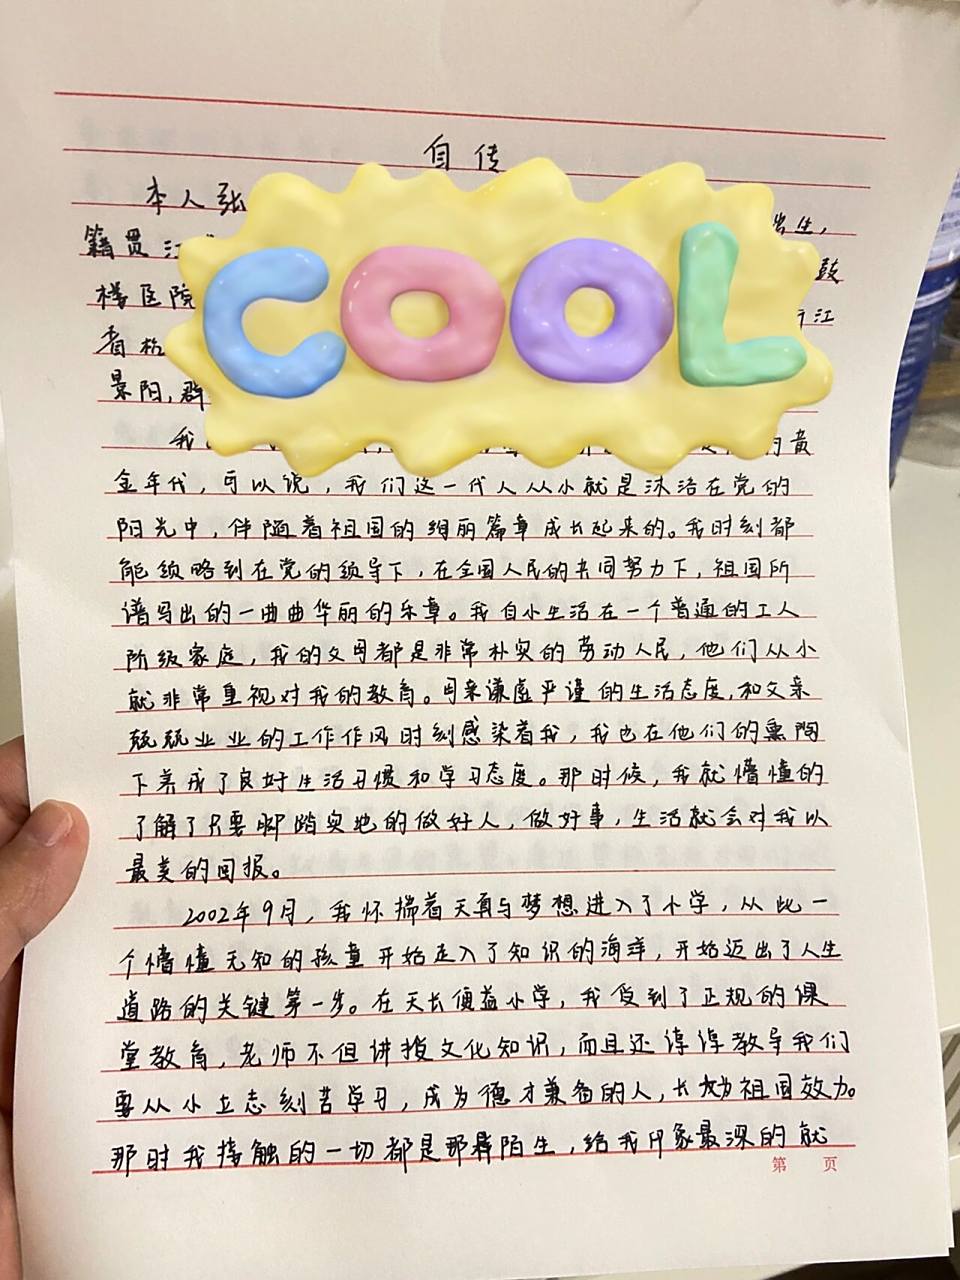 自传
本人张 出生,
籍贯江 鼓
楼医院 江
省杭
景阳,群
我 黄
金年代,可以说,我们这一代人从小就是沐浴在党的
阳光中,伴随着祖国的绚丽篇章成长起来的。我时刻都
能领略到在党的领导下,在全国人民的共同努力下,祖国所
谱写出的一曲曲华丽的乐章。我自小生活在一个普通的工人
阶级家庭,我的父母都是非常朴实的劳动人民,他们从小
就非常重视对我的教育。母亲谦虚严谨的生活态度,和父亲
兢兢业业的工作作风时刻感染着我,我也在他们的熏陶
下养成了良好生活习惯和学习态度。那时候,我就懵懂的
了解了只要脚踏实地的做好人,做好事,生活就会对我以
最美的回报。
2002年9月,我怀揣着天真与梦想进入了小学,从此一
个懵懂无知的孩童开始走入了知识的海洋,开始迈出了人生
道路的关键第一步。在天长便益小学,我受到了正规的课
堂教育,老师不但讲授文化知识,而且还谆谆教导我们
要从小立志刻苦学习,成为德才兼备的人,长大为祖国效力。
那时我接触的一切都是那样陌生,给我印象最深的就
第 页
COOL